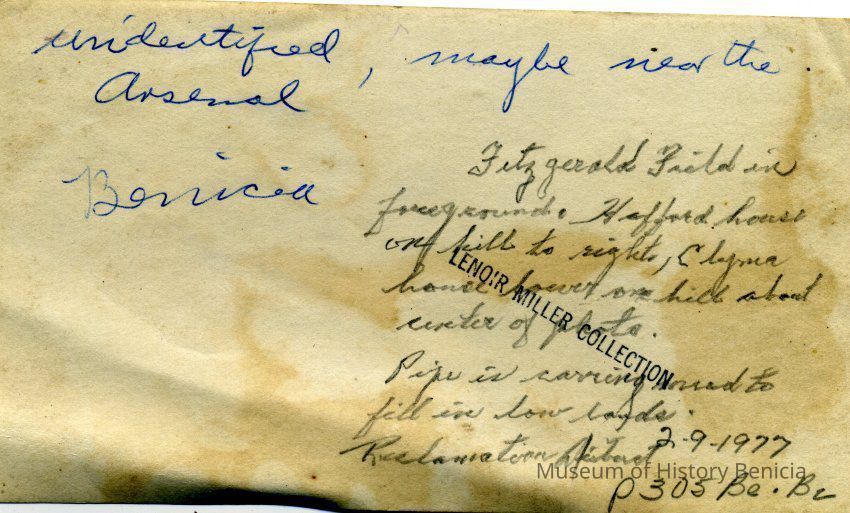 unidentified, maybe near the
Arsenal
Benicia
Fitzgerald Field in
foreground. Hafford house
on hill to right, Clyma
house lower on hill about
center of photo.
LENOIR MILLER COLLECTION
Pipe is carring mud to
fill in low lands.
Reclamation
2-9-1977
Museum of History Benicia
p 305 Be. Be